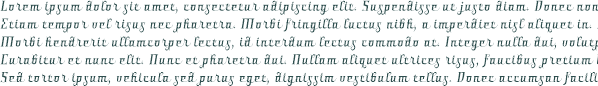 Lorem ipsum dolor sit amet, consectetur adipiscing elit. Suspendisse ut justo diam. Donec non
Etiam tempor vel risus nec pharetra. Morbi fringilla luctus nibh, a imperdiet nisl aliquet in.
Morbi hendrerit ullamcorper lectus, id interdum lectus commodo at. Integer nulla dui, volutp
Curabitur et nunc elit. Nunc et pharetra dui. Nullam aliquet ultrices risus, faucibus pretium
Sed tortor ipsum, vehicula sed purus eget, dignissim vestibulum tellus. Donec accumsan facili